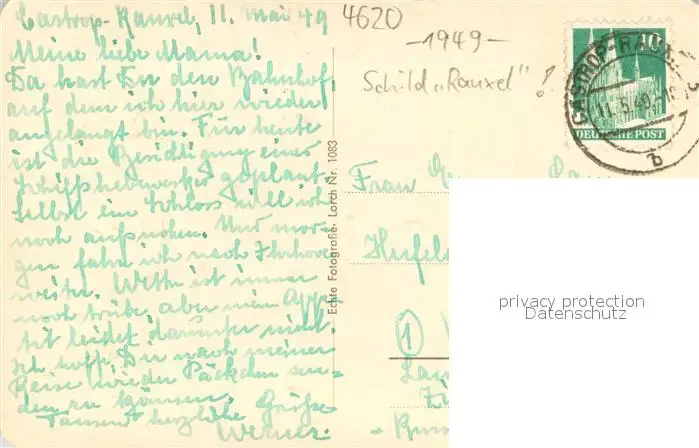 Castrop-Rauxel, 11. Mai 49
Meine liebe Mama!
Da hast Du den Bahnhof,
auf dem ich hier wieder
angelangt bin. Für heute
ist die Besichtigung eines
Schiffshebewerkes geplant.
Selbst ein Schloss will ich
noch aufsuchen. Und mor-
gen fahr ich nach
weiter. Wetter ist immer
noch trübe, aber mein Appe-
tit leidet darunter nicht.
Ich hoffe, Dir nach meiner
Reise wieder Päckchen sen-
den zu können.
Tausend herzliche Grüße
Werner.
4620
-1949-
Schild "Rauxel" !
Echte Fotografie Lorch Nr. 1083
10
DEUTSCHE POST
CASTROP-RAUXEL
11.5.49
b
Frau
Hufel
(1)
privacy protection
Datenschutz